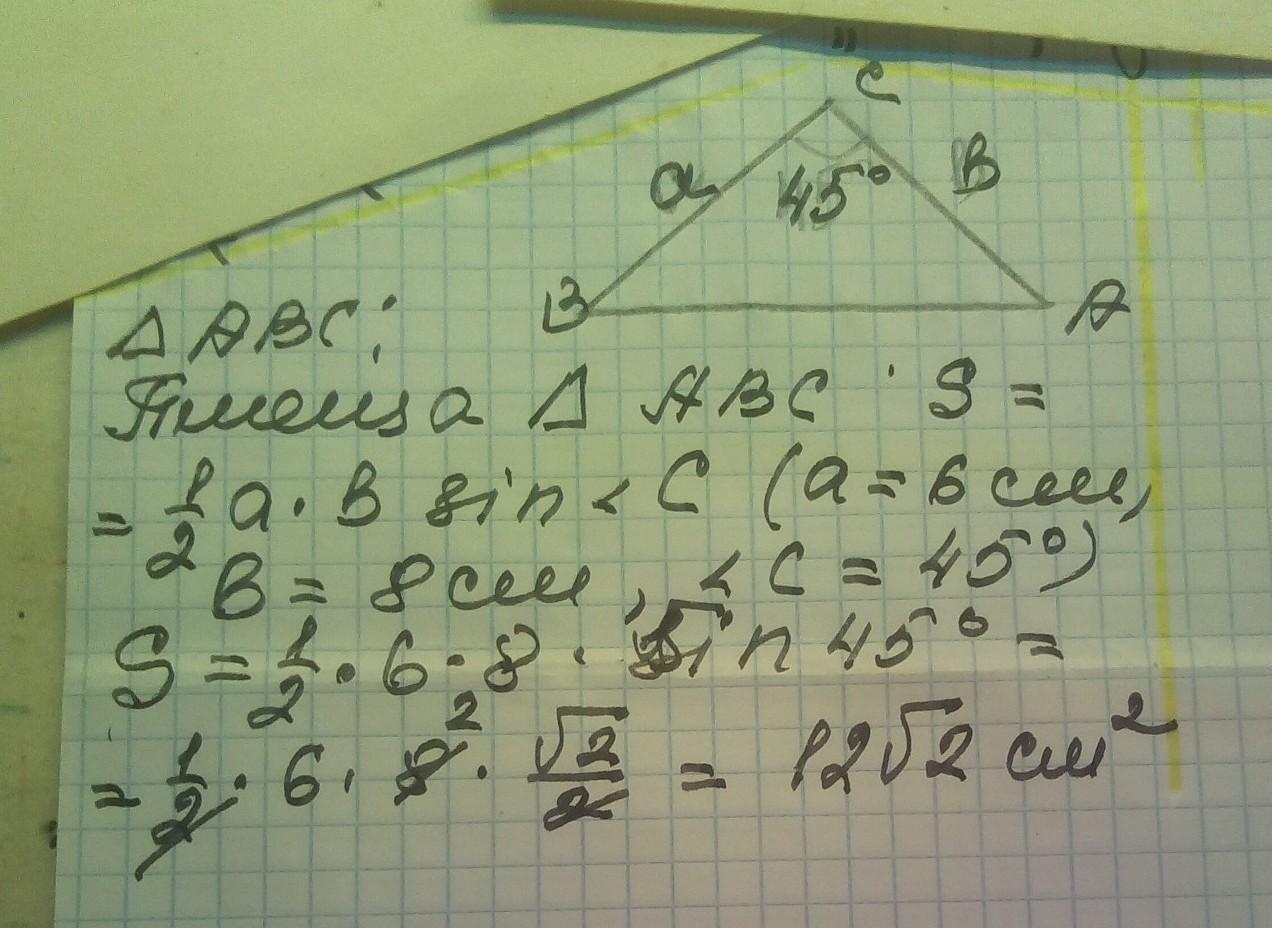 C
a 45° B
B A
Δ ABC:
Площа Δ ABC : S =
= 1/2 a · B sin < C (a = 6 см,
B = 8 см, < C = 45°)
S = 1/2 · 6 · 8 · sin 45° =
= 1/2 · 6 · 8² · √2/2 = 12√2 см²